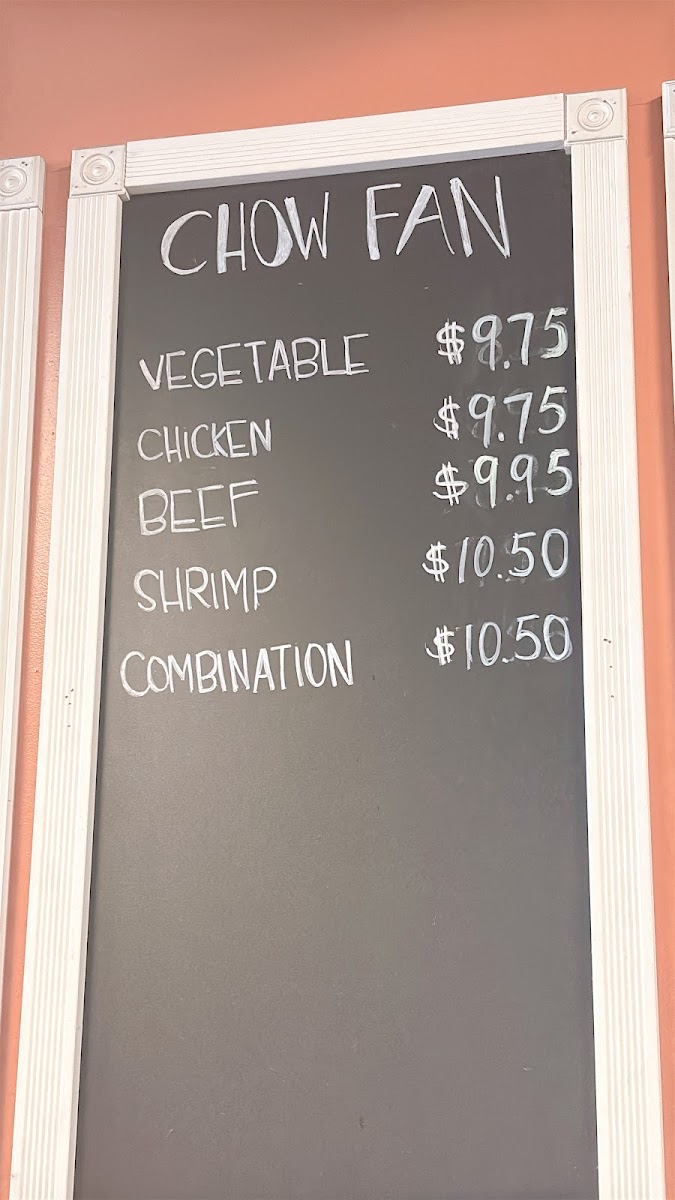 CHOW FAN
VEGETABLE $9.75
CHICKEN $9.75
BEEF $9.95
SHRIMP $10.50
COMBINATION $10.50